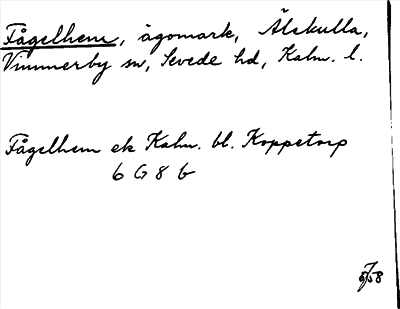 Fågelhem, ägomark, Älskulla,
Vimmerby sn, Sevede hd, Kalm. l.
Fågelhem ek Kalm. bl. Koppetorp
6 G 8 b